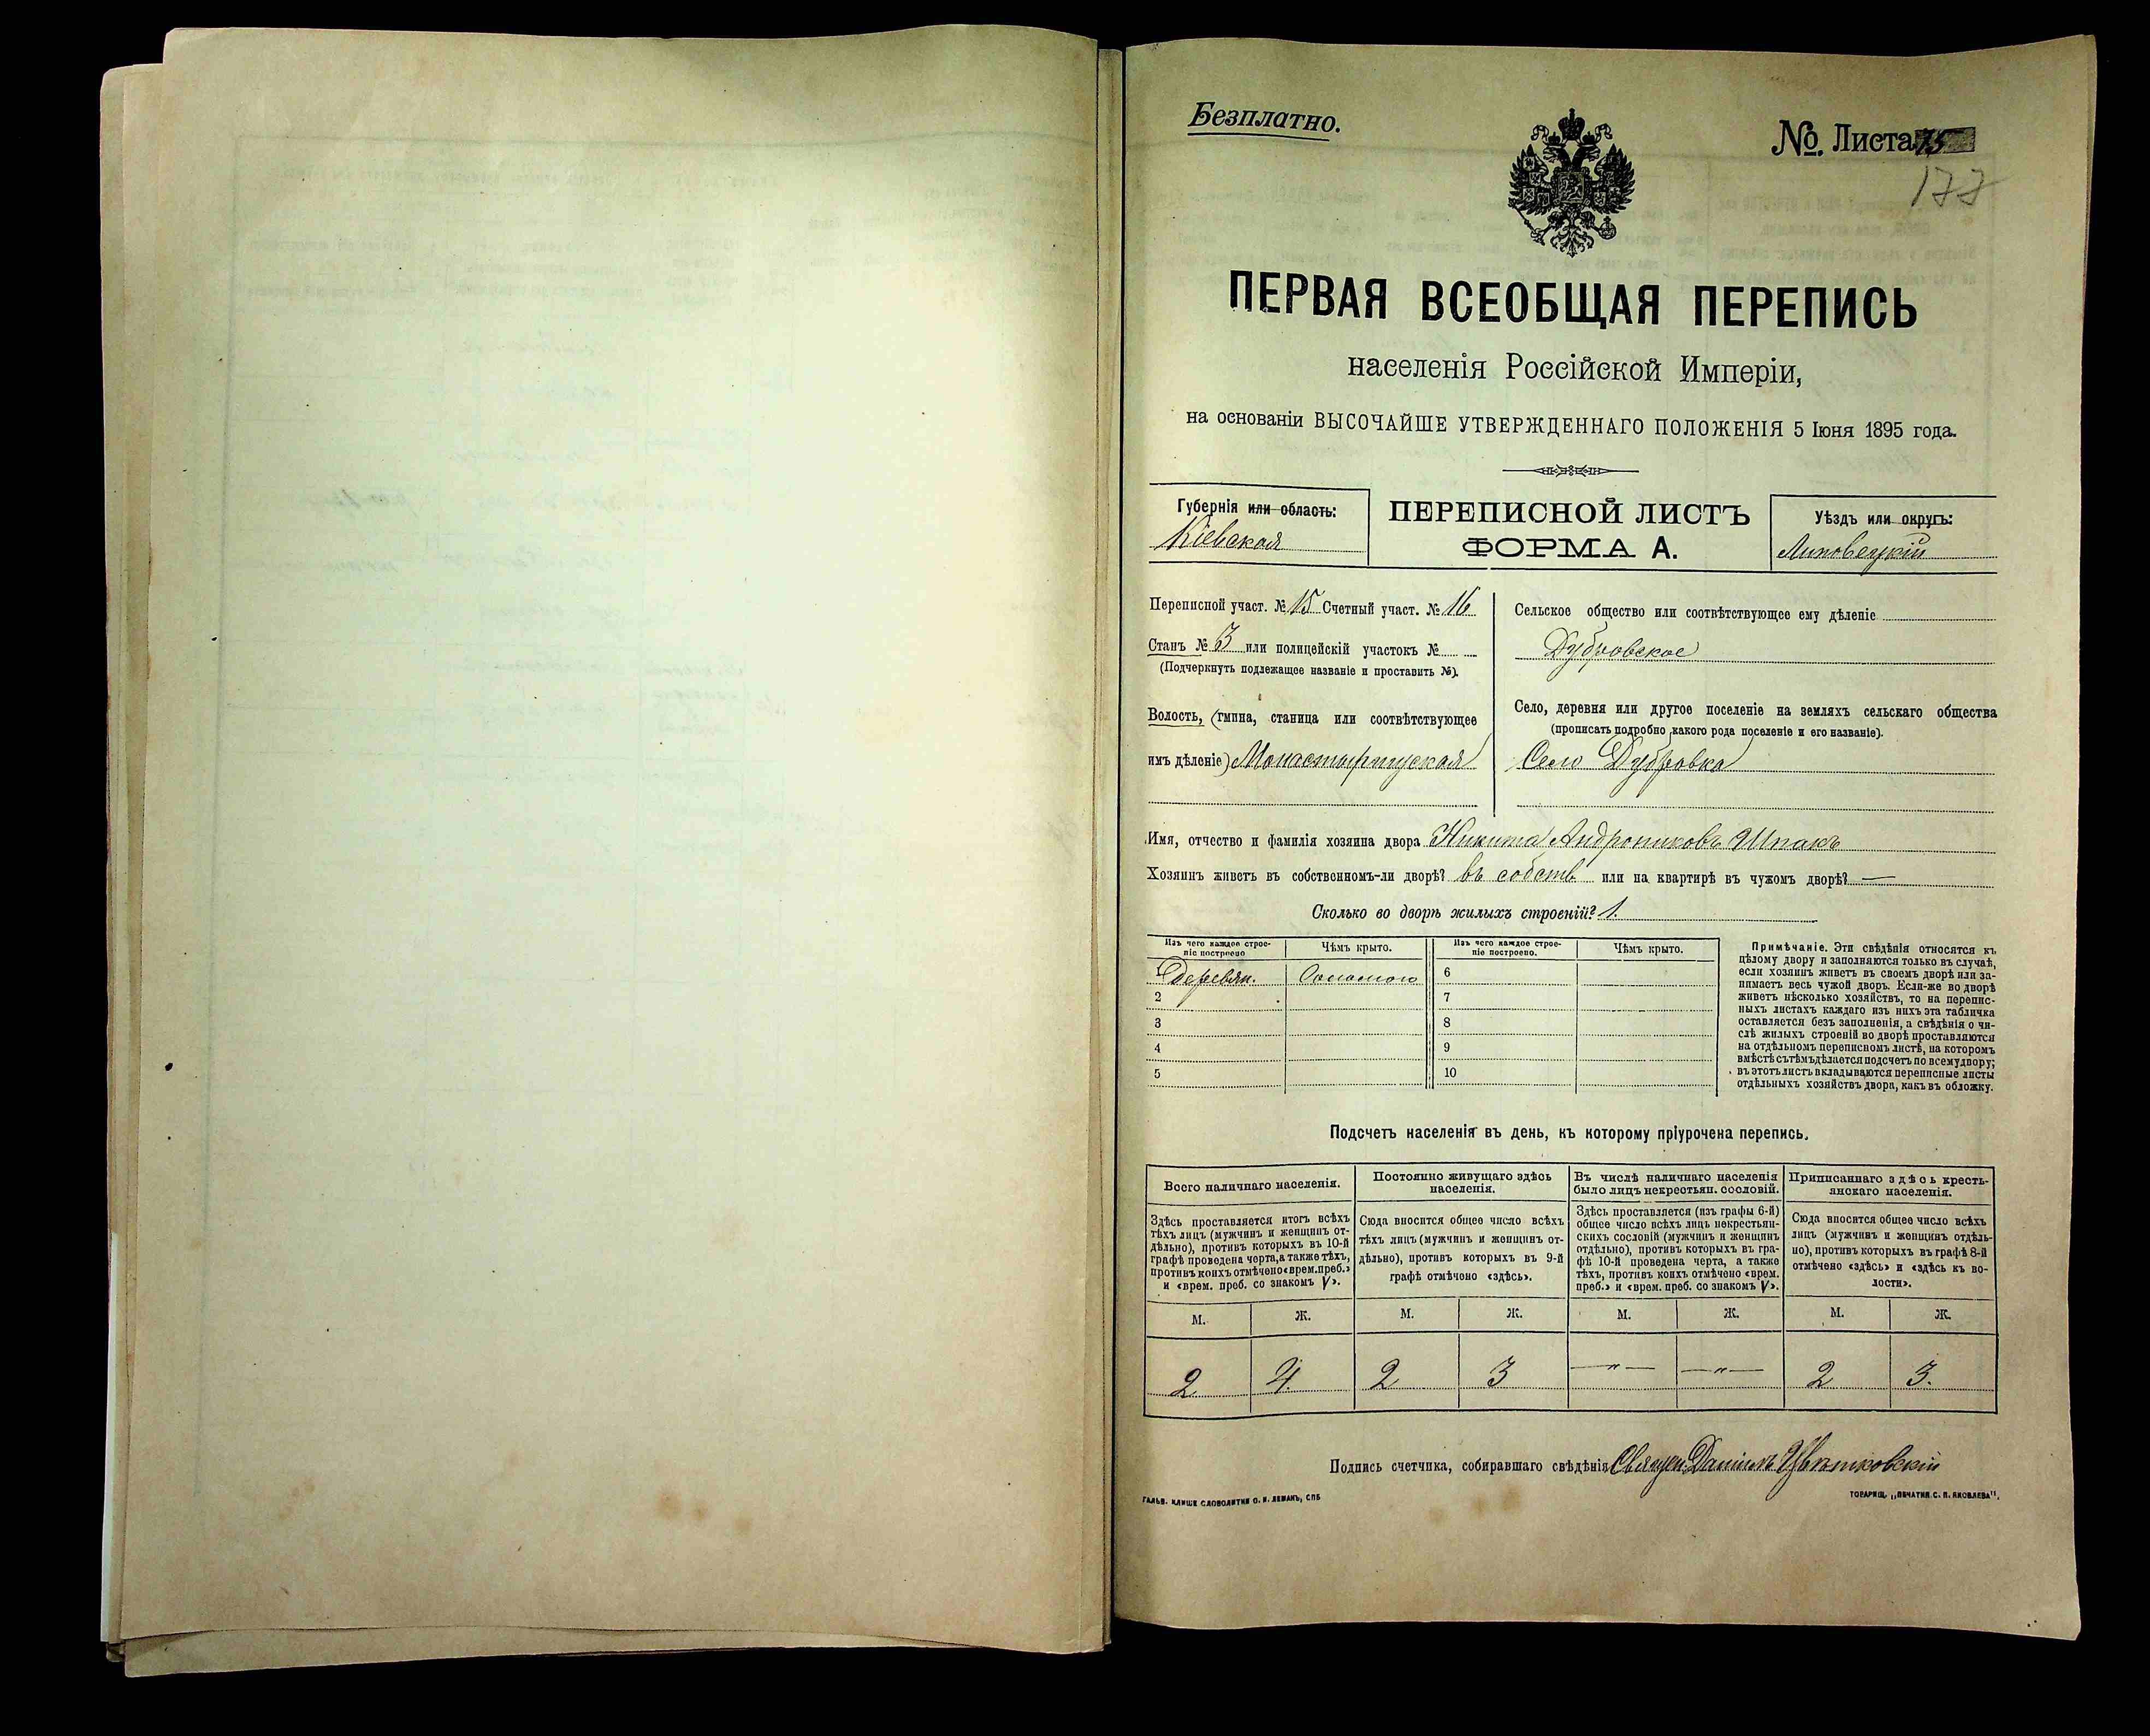 Безплатно.
№. Листа 75
177
ПЕРВАЯ ВСЕОБЩАЯ ПЕРЕПИСЬ
населенія Россійской Имперіи,
на основаніи ВЫСОЧАЙШЕ УТВЕРЖДЕННАГО ПОЛОЖЕНІЯ 5 Іюня 1895 года.
Губернія или область:
Кіевская
ПЕРЕПИСНОЙ ЛИСТЪ
ФОРМА А.
Уѣздъ или округъ:
Липовецкій
Переписной участ. № 15 Счетный участ. № 16
Станъ № 3 или полицейскій участокъ №
(Подчеркнуть подлежащее названіе и проставить №).
Волость, (гмина, станица или соотвѣтствующее
имъ дѣленіе) Монастырищская
Сельское общество или соотвѣтствующее ему дѣленіе
Дубровское
Село, деревня или другое поселеніе на земляхъ сельскаго общества
(прописать подробно какого рода поселеніе и его названіе).
Село Дубровка
Имя, отчество и фамилія хозяина двора Никита Андрониковъ Шпакъ
Хозяинъ живетъ въ собственномъ-ли дворѣ? въ собств или на квартирѣ въ чужомъ дворѣ? —
Сколько во дворѣ жилыхъ строеній? 1.
Изъ чего каждое строе-
ніе построено
Чѣмъ крыто.
Изъ чего каждое строе-
ніе построено.
Чѣмъ крыто.
Деревян. Соломою 6
2 7
3 8
4 9
5 10
Примѣчаніе. Эти свѣдѣнія относятся къ
цѣлому двору и заполняются только въ случаѣ,
если хозяинъ живетъ въ своемъ дворѣ или за-
нимаетъ весь чужой дворъ. Если-же во дворѣ
живетъ нѣсколько хозяйствъ, то на перепис-
ныхъ листахъ каждаго изъ нихъ эта табличка
оставляется безъ заполненія, а свѣдѣнія о чи-
слѣ жилыхъ строеній во дворѣ проставляются
на отдѣльномъ переписномъ листѣ, на которомъ
вмѣстѣ съ тѣмъ дѣлается подсчетъ по всему двору;
въ этотъ листъ вкладываются переписные листы
отдѣльныхъ хозяйствъ двора, какъ въ обложку.
Подсчетъ населенія въ день, къ которому пріурочена перепись.
Всего наличнаго населенія.
Здѣсь проставляется итогъ всѣхъ
тѣхъ лицъ (мужчинъ и женщинъ от-
дѣльно), противъ которыхъ въ 10-й
графѣ проведена черта, а также тѣхъ,
противъ коихъ отмѣчено «врем. преб.»
и «врем. преб. со знакомъ V».
Постоянно живущаго здѣсь
населенія.
Сюда вносится общее число всѣхъ
тѣхъ лицъ (мужчинъ и женщинъ от-
дѣльно), противъ которыхъ въ 9-й
графѣ отмѣчено «здѣсь».
Въ числѣ наличнаго населенія
было лицъ некрестьян. сословій.
Здѣсь проставляется (изъ графы 6-й)
общее число всѣхъ лицъ некрестьян-
скихъ сословій (мужчинъ и женщинъ
отдѣльно), противъ которыхъ въ гра-
фѣ 10-й проведена черта, а также
тѣхъ, противъ коихъ отмѣчено «врем.
преб.» и «врем. преб. со знакомъ V».
Приписаннаго здѣсь кресть-
янскаго населенія.
Сюда вносится общее число всѣхъ
лицъ (мужчинъ и женщинъ отдѣль-
но), противъ которыхъ въ графѣ 8-й
отмѣчено «здѣсь» и «здѣсь къ во-
лости».
М. Ж. М. Ж. М. Ж. М. Ж.
2 4 2 3 —"— —"— 2 3.
Подпись счетчика, собиравшаго свѣдѣнія Священ. Даніилъ Цвѣтковскій
ГАЛЬВ. КЛИШЕ СЛОВОЛИТНИ О. И. ЛЕМАНЪ, СПБ
ТОВАРИЩ. „ПЕЧАТНЯ С. П. ЯКОВЛЕВА".